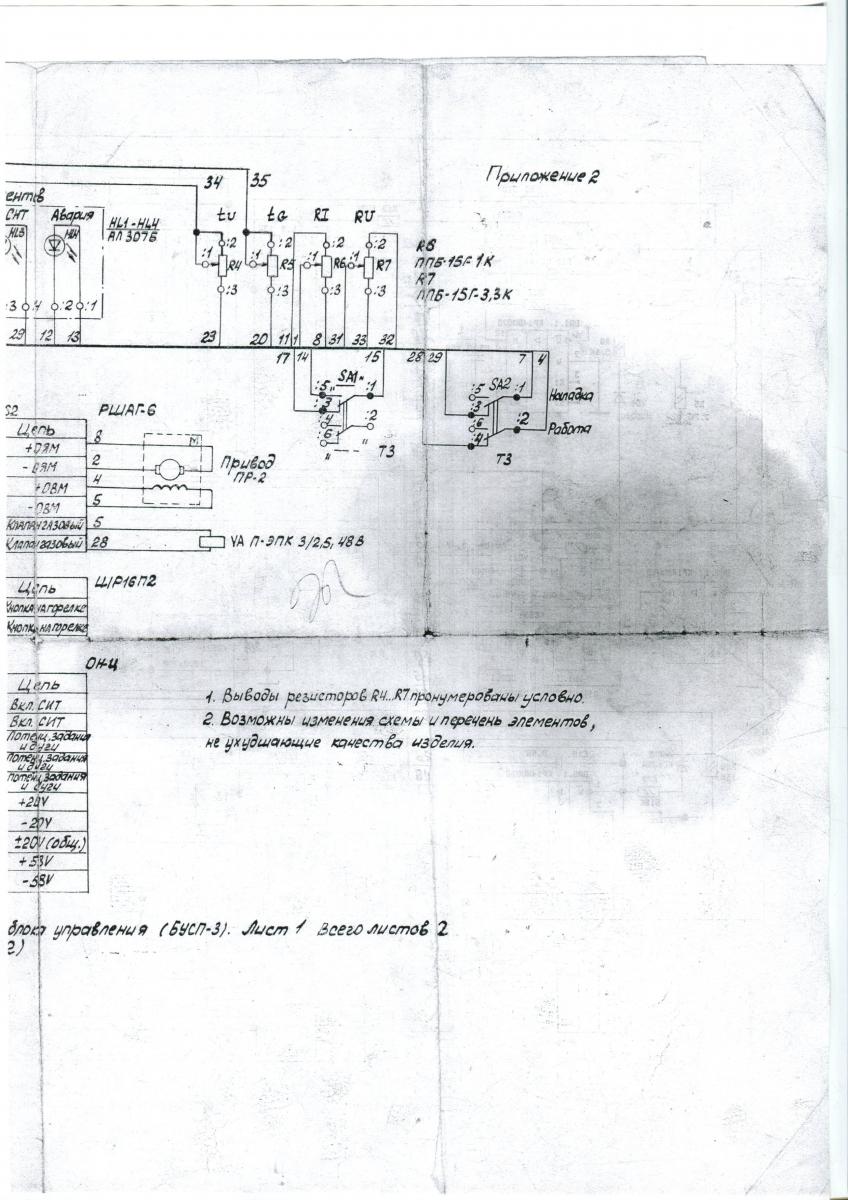 Приложение 2
34 35
ентов
СНТ Авария HL1-HL4
АЛ307Б
HL3 HL4
tu tG RI RU
:2 :2 :2 :2
:1 R4 :1 R5 :1 R6 :1 R7
:3 :3 :3 :3
R6
ППБ-15Г-1К
R7
ППБ-15Г-3,3К
:3 :4 :2 :1
29 12 13 23 20 11 1 8 31 33 32
17 14 15 28 29 7 4
:5 SA1 :1
:3
:4 :2
:6
Т3
:5 SA2 :1
:3
:6 :2
:4
Т3
Наладка
Работа
S2 РШАГ-6
Цепь
+ОЯМ 8
-ОЯМ 2
+ОВМ 4
-ОВМ 5
Клапан газовый 5
Клапан газовый 28
М
Привод
ПР-2
YA П-ЭПК 3/2,5, 48 В
ШР16П2
Цепь
Кнопка на горелке
Кнопка на горелке
ОНЦ
Цепь
Вкл. СИТ
Вкл. СИТ
Потенц. задания
и дуги
Потенц. задания
и дуги
Потенц. задания
и дуги
+20V
-20V
±20V (общ.)
+53V
-53V
1. Выводы резисторов R4...R7 пронумерованы условно.
2. Возможны изменения схемы и перечень элементов,
не ухудшающие качества изделия.
блока управления (БУСП-3). Лист 1 Всего листов 2
2)